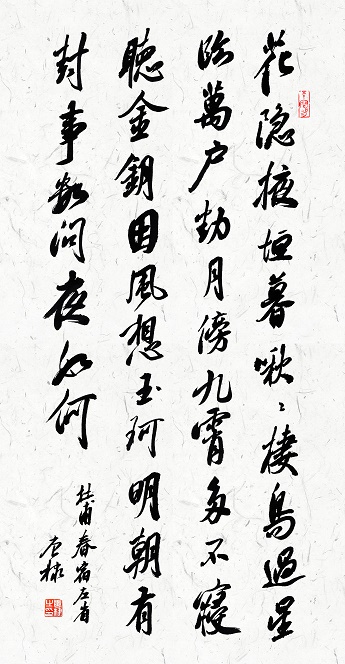 花隐掖垣暮啾〻棲鳥過星
临萬户動月傍九霄多不寢
聽金鑰因風想玉珂明朝有
封事數問夜如何
杜甫春宿左省